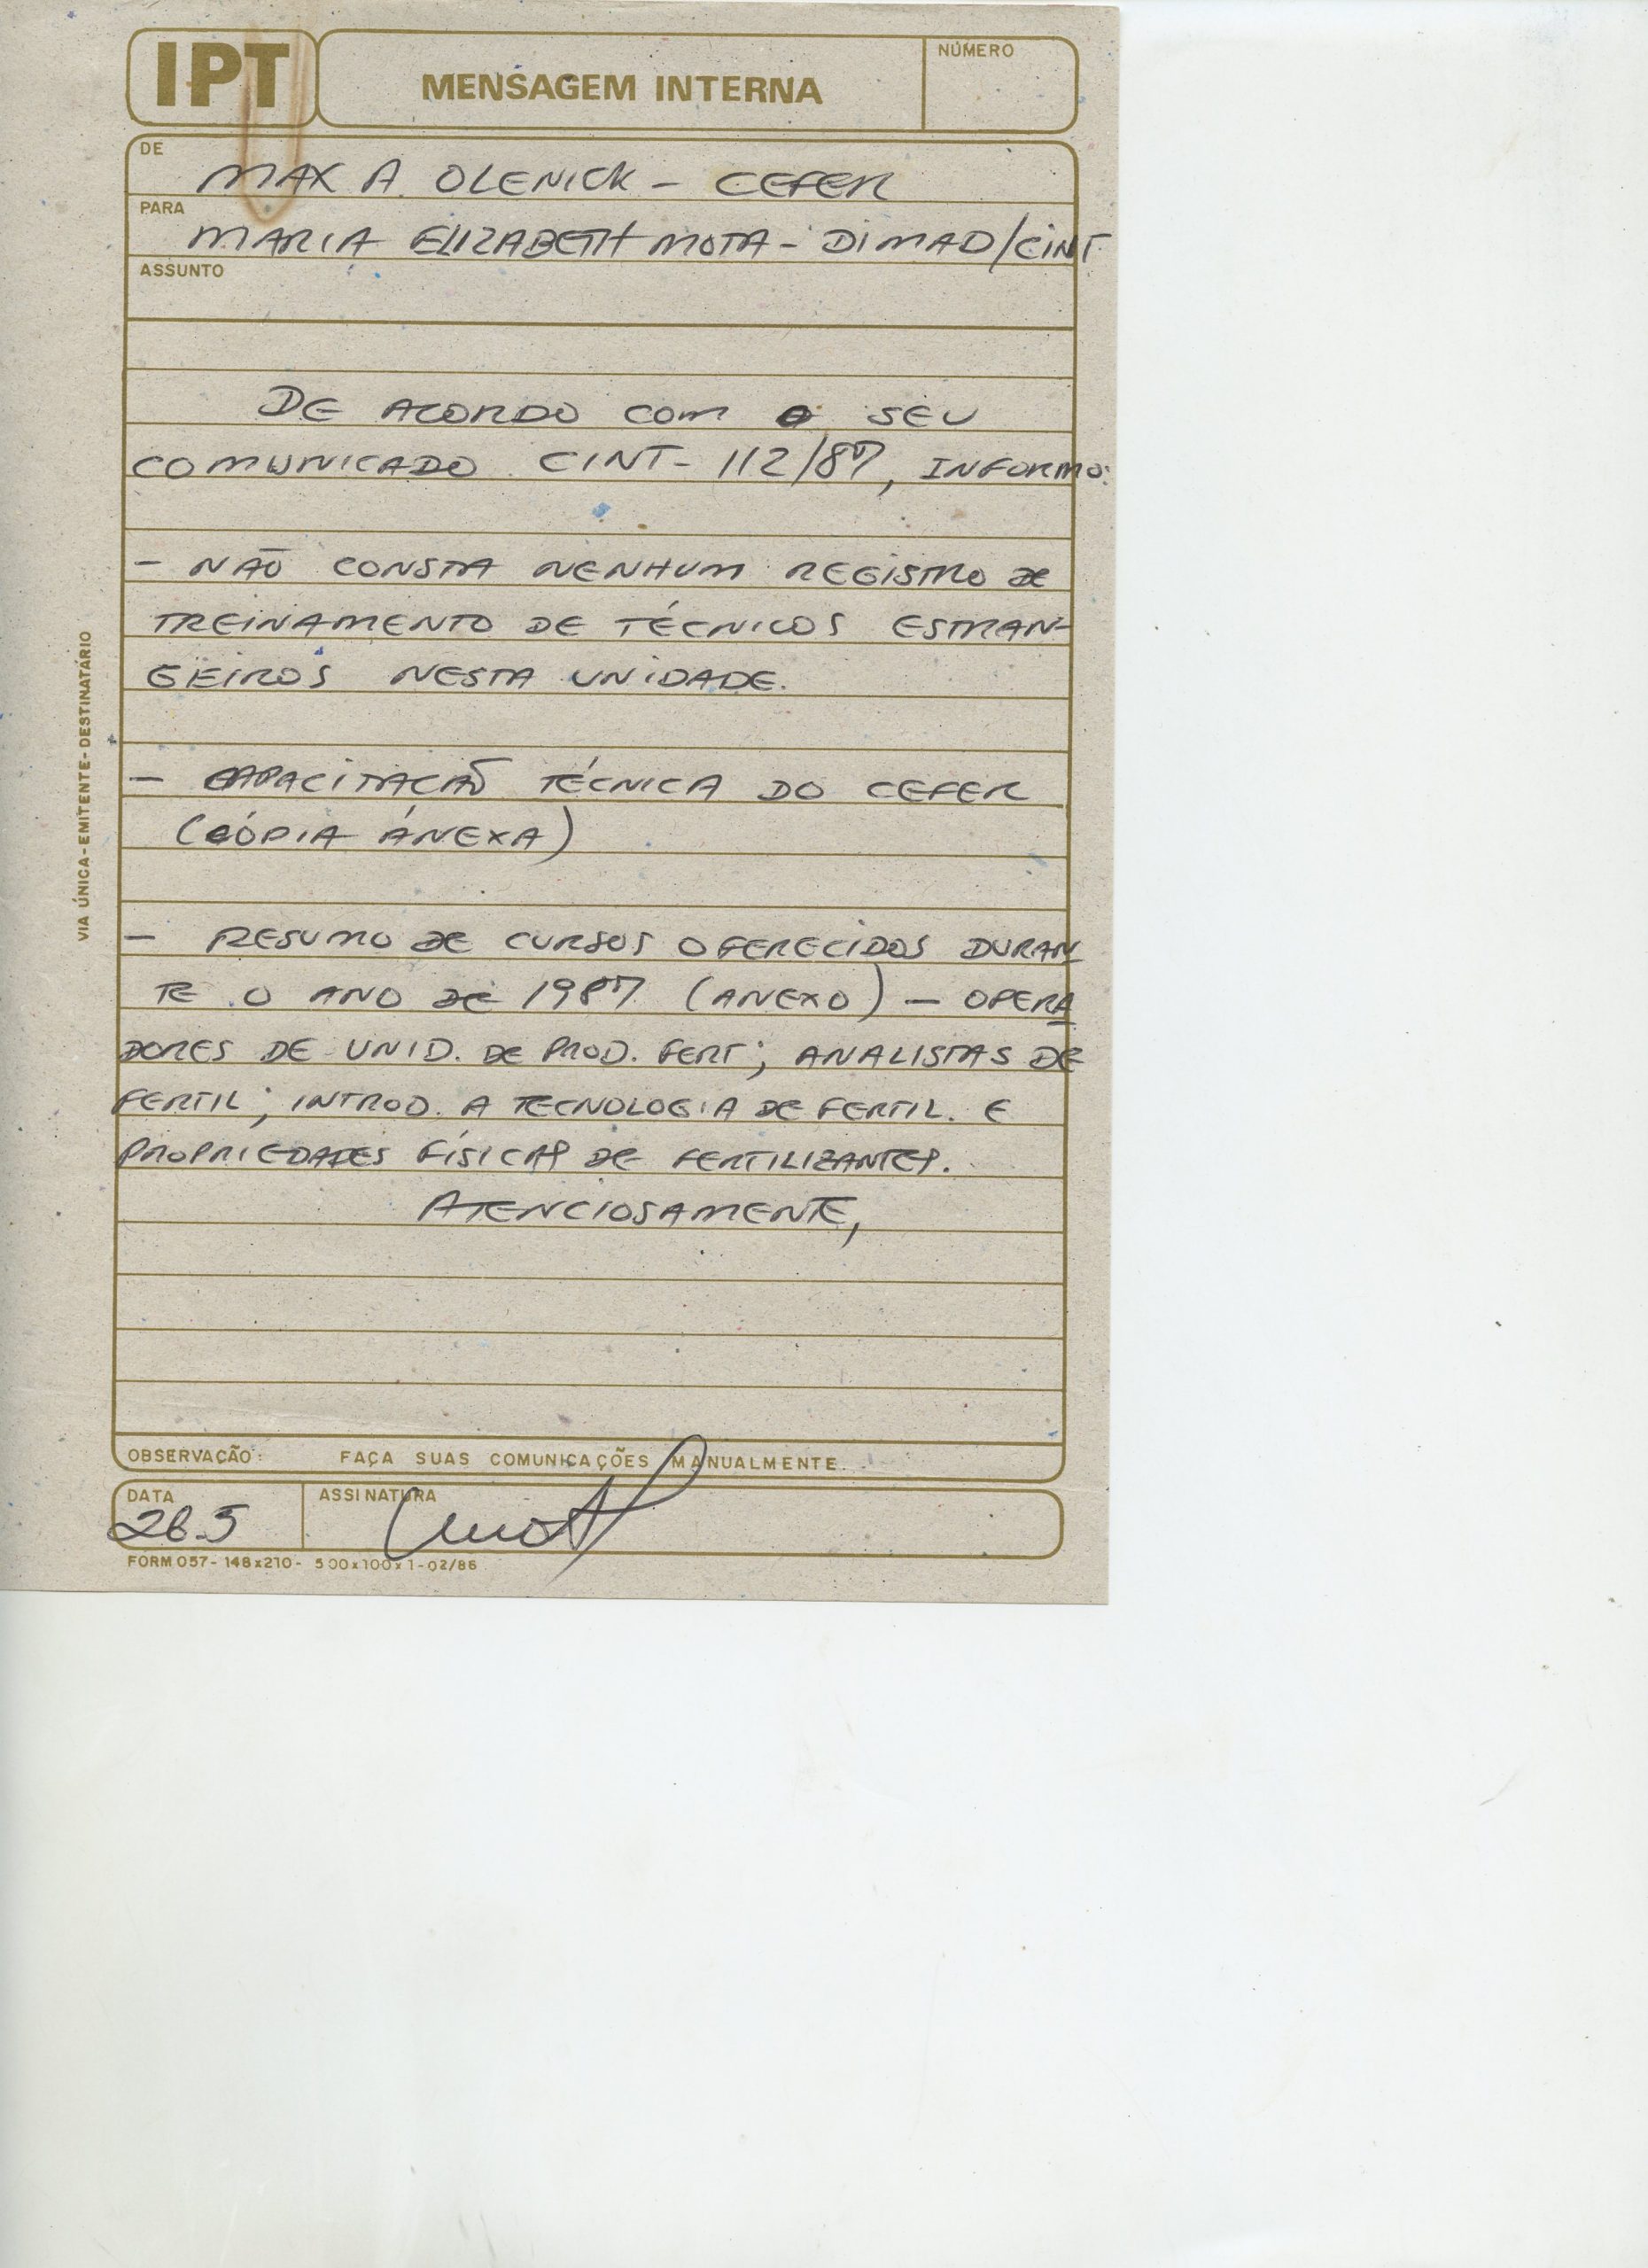 IPT
MENSAGEM INTERNA
NÚMERO
DE
MAX A. OLENICK - CEFER
PARA
MARIA ELIZABETH MOTA - DIMAD/CINT
ASSUNTO
DE ACORDO COM O SEU
COMUNICADO CINT- 112/87, INFORMO:
- NÃO CONSTA NENHUM REGISTRO DE
TREINAMENTO DE TÉCNICOS ESTRAN-
GEIROS NESTA UNIDADE.
- CAPACITAÇÃO TÉCNICA DO CEFER
(CÓPIA ANEXA)
- RESUMO DE CURSOS OFERECIDOS DURAN-
TE O ANO DE 1987 (ANEXO) - OPERA
DORES DE UNID. DE PROD. FERT; ANALISTAS DE
FERTIL; INTROD. A TECNOLOGIA DE FERTIL. E
PROPRIEDADES FÍSICAS DE FERTILIZANTES.
ATENCIOSAMENTE,
VIA ÚNICA-EMITENTE-DESTINATÁRIO
OBSERVAÇÃO: FAÇA SUAS COMUNICAÇÕES MANUALMENTE.
DATA
26.5
ASSINATURA
FORM 057- 148x210- 500x100x1-02/86